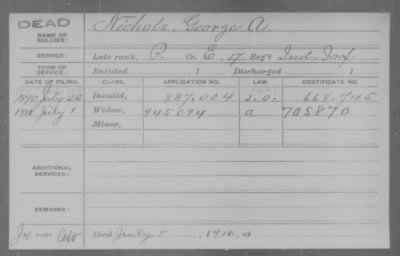 DEAD
NAME OF SOLDIER: Nichols, George A.
SERVICE: Late rank, P. Co. E, 17 Reg't Ind. Inf.
TERM OF SERVICE: Enlisted , 1 Discharged , 1
DATE OF FILING. CLASS. APPLICATION NO. LAW. CERTIFICATE NO.
1890 July 22 Invalid, 887.004 J.O. 668.745
1910 July 1 Widow, 945094 a 705870
Minor,
ADDITIONAL SERVICES:
REMARKS:
Died 1910, at